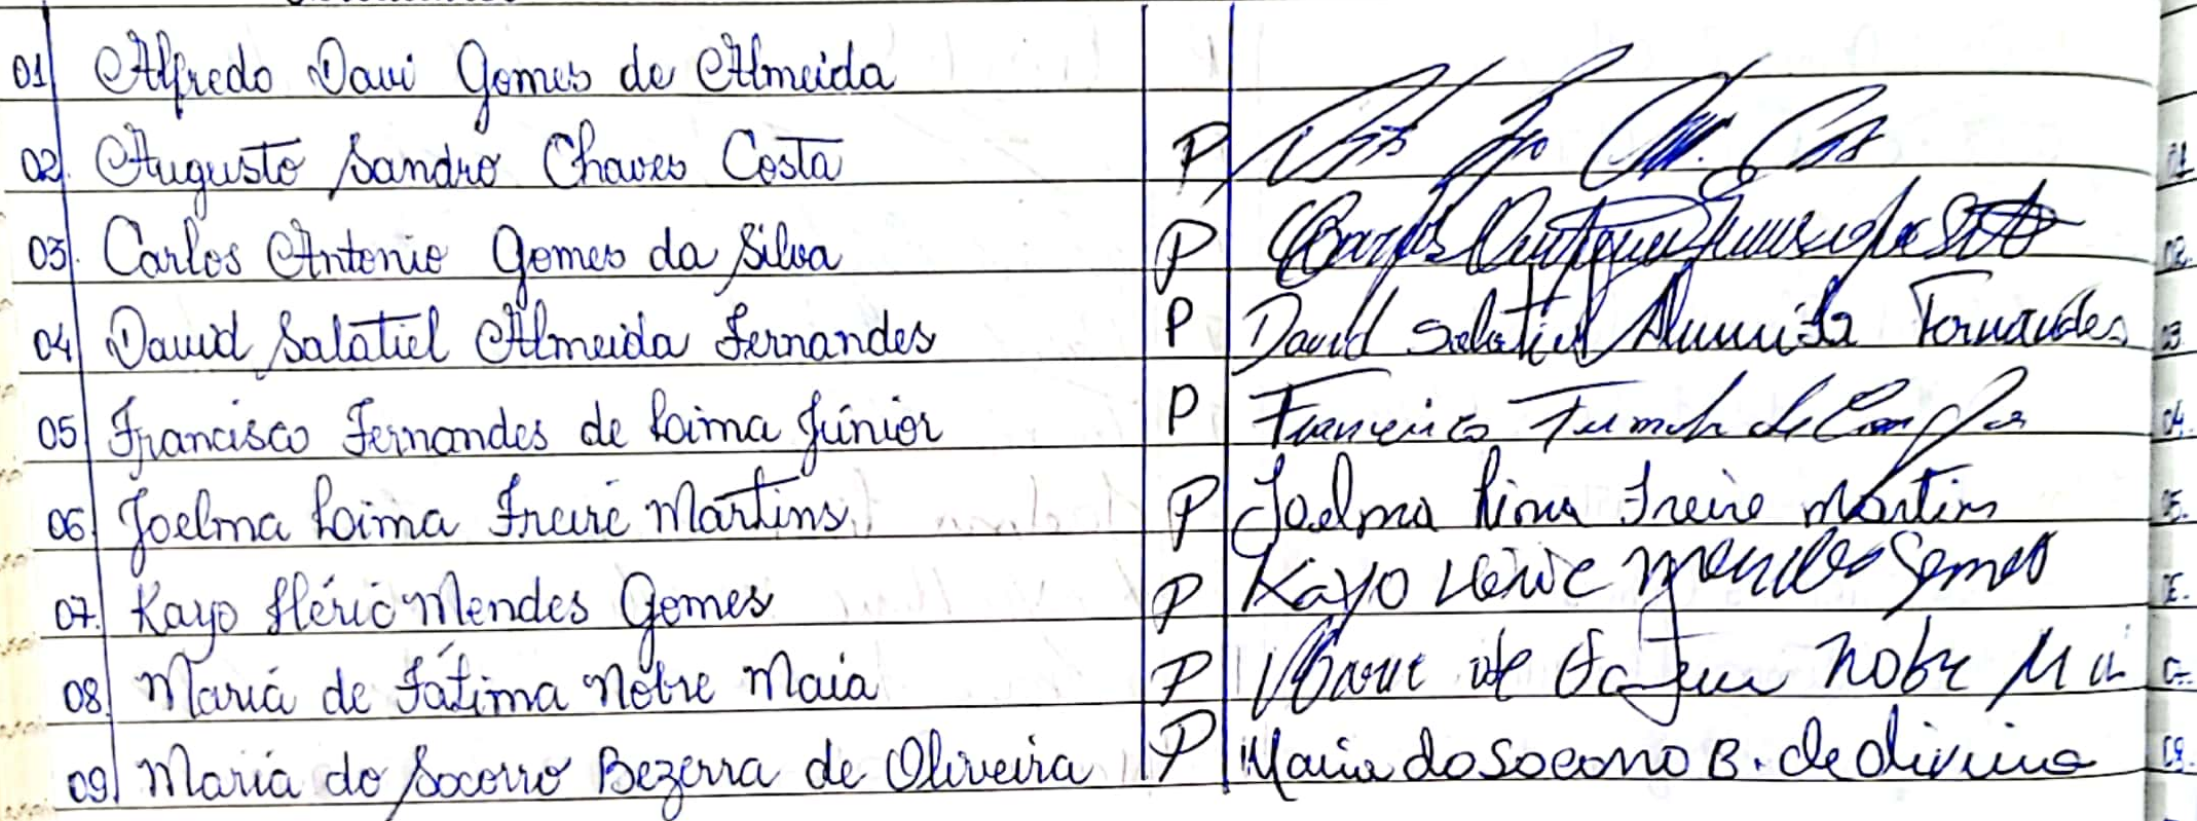 01 Alfredo Davi Gomes de Almeida
02. Augusto Sandro Chaves Costa P
03. Carlos Antonio Gomes da Silva P
04 David Salatiel Almeida Fernandes P David Salatiel Almeida Fernandes
05 Francisco Fernandes de Loima Júnior P Francisco
06. Joelma Loima Freire Martins P Joelma Lima Freire Martins
07. Kayo Héric Mendes Gomes P Kayo Héric Mendes Gomes
08. Maria de Fátima Nobre Maia P de Nobre
09 Maria do Socorro Bezerra de Oliveira P Maria do Socorro B. de Oliveira